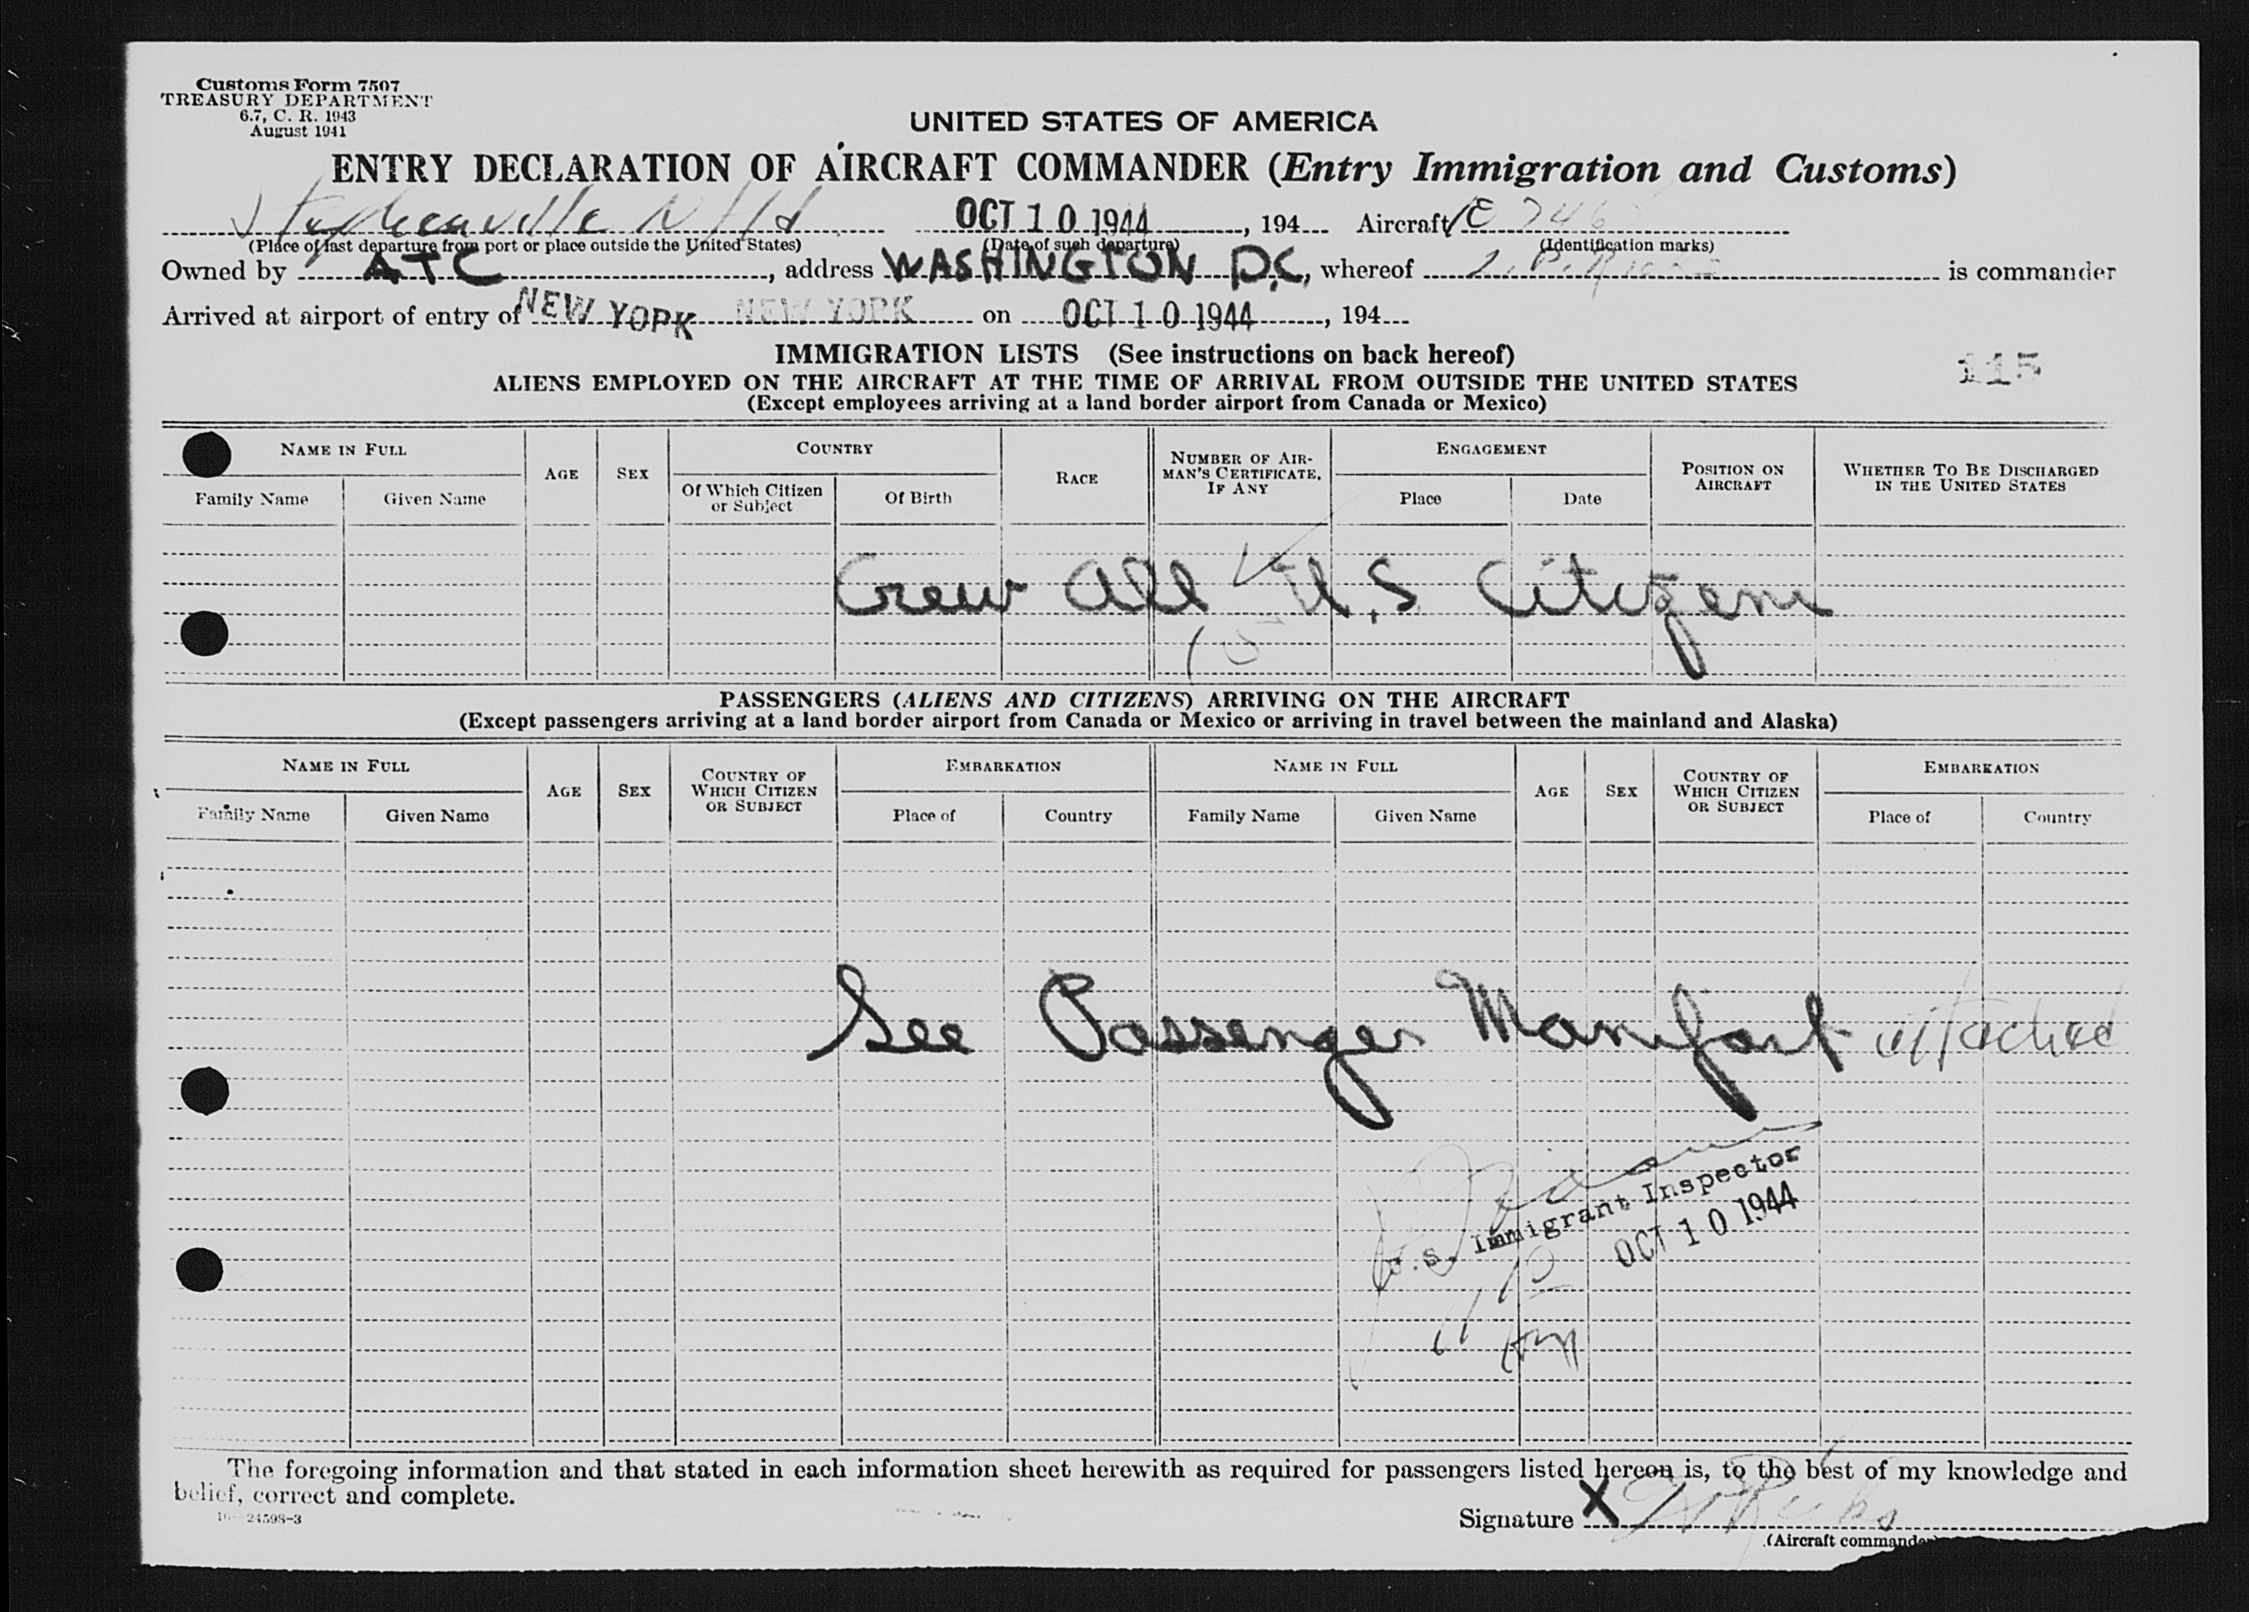 Customs Form 7507
TREASURY DEPARTMENT
6.7, C. R. 1943
August 1941
UNITED STATES OF AMERICA
ENTRY DECLARATION OF AIRCRAFT COMMANDER (Entry Immigration and Customs)
Stephenville Nfld OCT 10 1944, 194 Aircraft
(Place of last departure from port or place outside the United States) (Date of such departure) (Identification marks)
Owned by ATC, address WASHINGTON D.C., whereof is commander
Arrived at airport of entry of NEW YORK NEW YORK on OCT 10 1944, 194
IMMIGRATION LISTS (See instructions on back hereof)
115
ALIENS EMPLOYED ON THE AIRCRAFT AT THE TIME OF ARRIVAL FROM OUTSIDE THE UNITED STATES
(Except employees arriving at a land border airport from Canada or Mexico)
NAME IN FULL AGE SEX COUNTRY RACE NUMBER OF AIRMAN'S CERTIFICATE, IF ANY ENGAGEMENT POSITION ON AIRCRAFT WHETHER TO BE DISCHARGED IN THE UNITED STATES
Family Name Given Name Of Which Citizen or Subject Of Birth Place Date
Crew all U.S Citizens
10
PASSENGERS (ALIENS AND CITIZENS) ARRIVING ON THE AIRCRAFT
(Except passengers arriving at a land border airport from Canada or Mexico or arriving in travel between the mainland and Alaska)
NAME IN FULL AGE SEX COUNTRY OF WHICH CITIZEN OR SUBJECT EMBARKATION NAME IN FULL AGE SEX COUNTRY OF WHICH CITIZEN OR SUBJECT EMBARKATION
Family Name Given Name Place of Country Family Name Given Name Place of Country
See Passenger Manifast attached
U.S. Immigrant Inspector
OCT 10 1944
The foregoing information and that stated in each information sheet herewith as required for passengers listed hereon is, to the best of my knowledge and
belief, correct and complete.
16—24598-3
Signature X
(Aircraft commander)